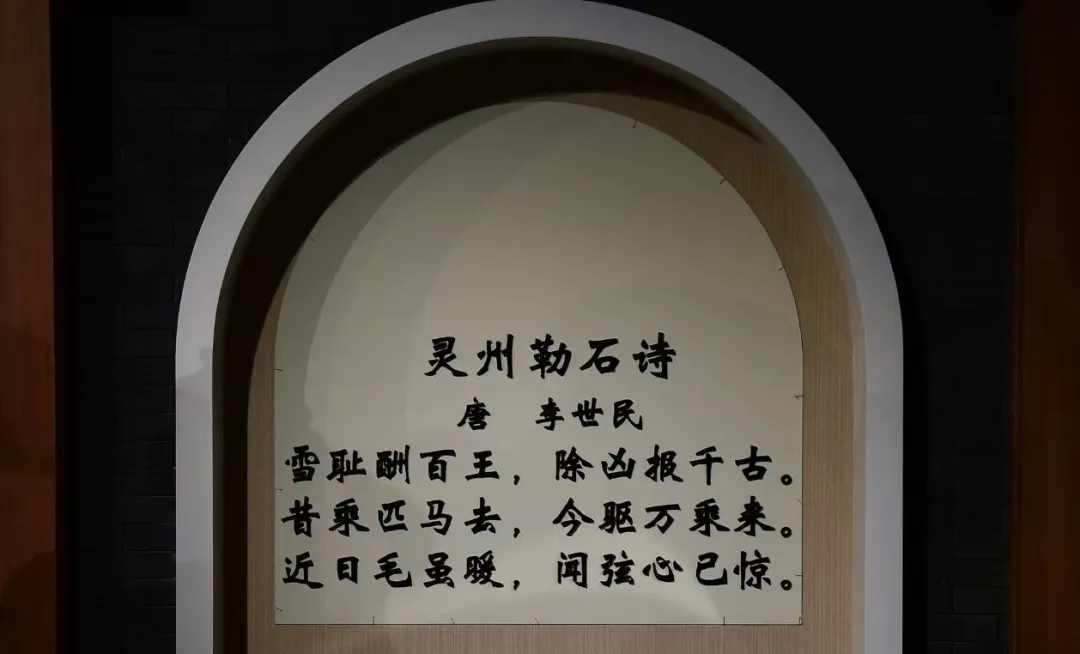 灵州勒石诗
唐 李世民
雪耻酬百王，除凶报千古。
昔乘匹马去，今驱万乘来。
近日毛虽暖，闻弦心已惊。